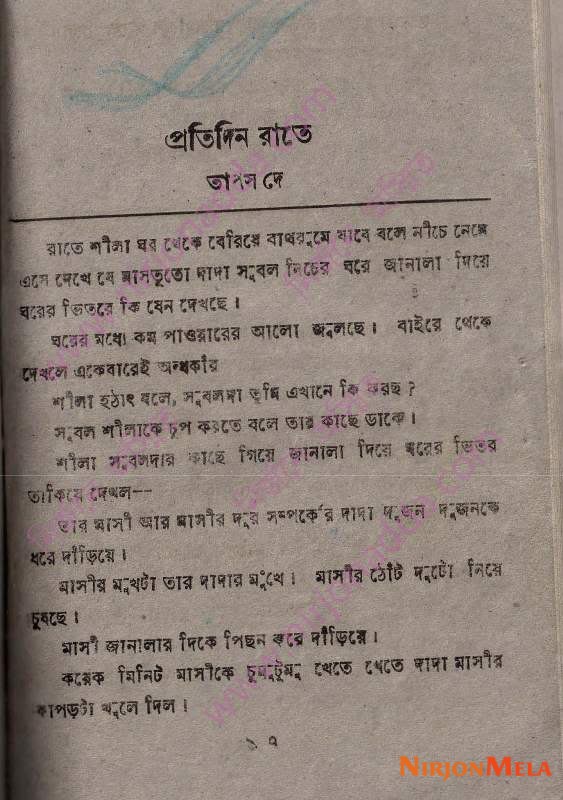 প্রতিদিন রাতে
তাপস দে
রাতে শীলা ঘর থেকে বেরিয়ে বাথরুমে যাবে বলে নীচে নেমে
এসে দেখে যে মাসতুতো দাদা সুবল নিচের ঘরে জানালা দিয়ে
ঘরের ভিতরে কি যেন দেখছে।
ঘরের মধ্যে কম পাওয়ারের আলো জ্বলছে। বাইরে থেকে
দেখলে একেবারেই অন্ধকার
শীলা হঠাৎ বলে, সুবলদা তুমি এখানে কি করছ?
সুবল শীলাকে চুপ করতে বলে তার কাছে ডাকে।
শীলা সুবলদার কাছে গিয়ে জানালা দিয়ে ঘরের ভিতর
তাকিয়ে দেখল--
তার মাসী আর মাসীর দূর সম্পর্কের দাদা দুজন দুজনকে
ধরে দাঁড়িয়ে।
মাসীর মুখটা তার দাদার মুখে। মাসীর ঠোঁট দুটো নিয়ে
চুষছে।
মাসী জানালার দিকে পিছন করে দাঁড়িয়ে।
কয়েক মিনিট মাসীকে চুমুটুমু খেতে খেতে দাদা মাসীর
কাপড়টা খুলে দিল।
NIRJONMELA